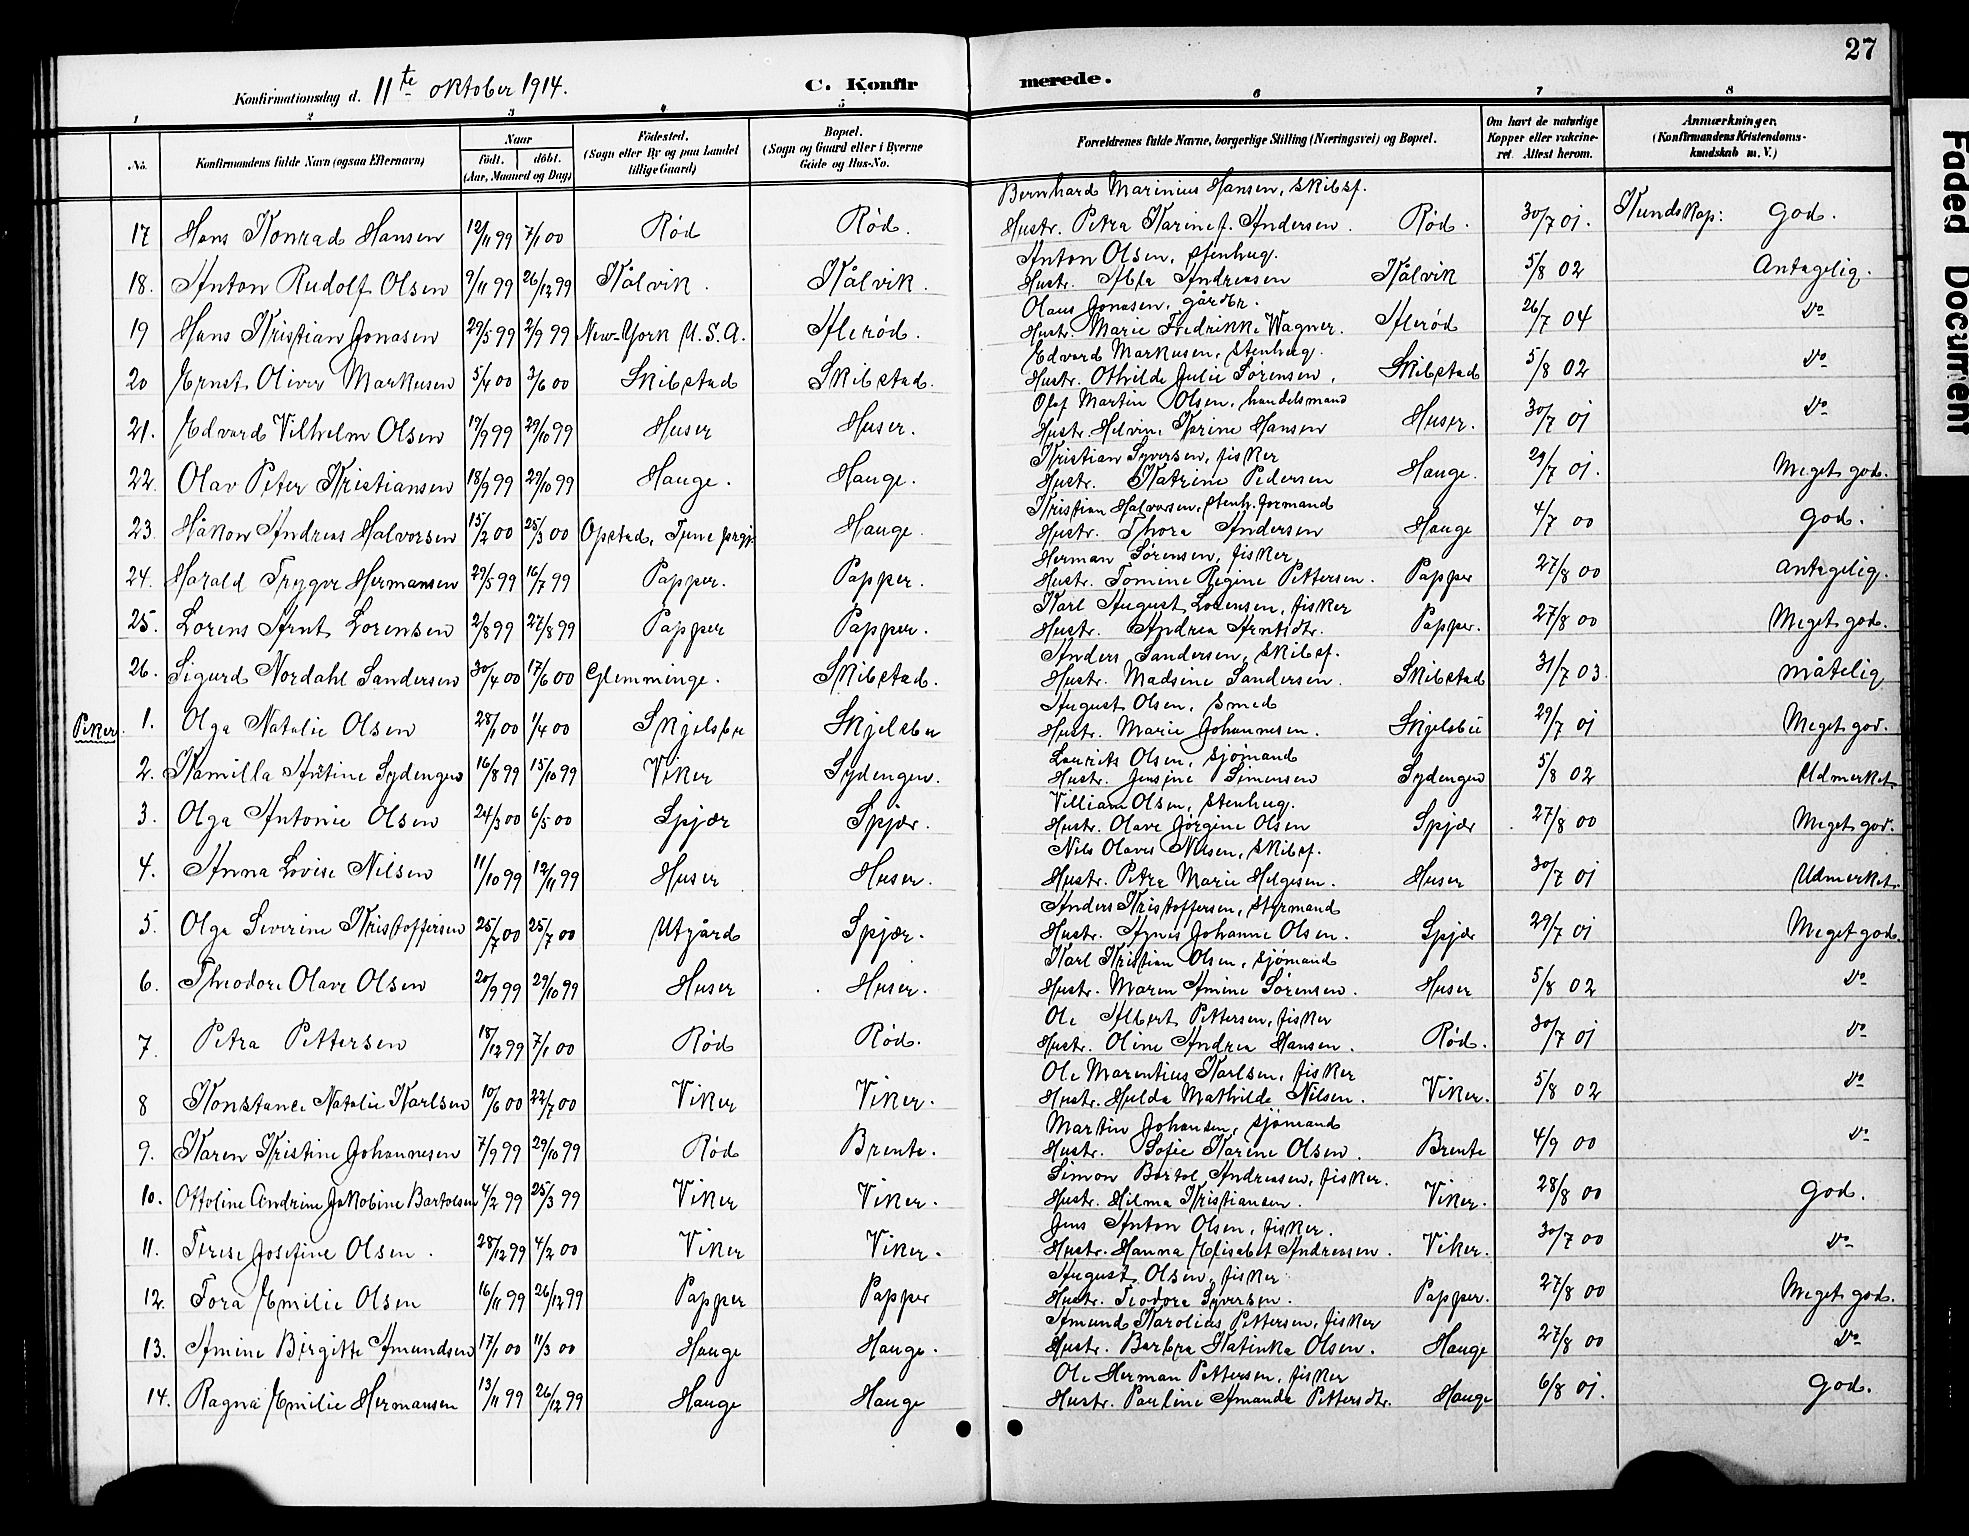 27
Konfirmationsdag d. 11te oktober 1914.
C. Konfirmerede.
1 2 3 4 5 6 7 8
No. Konfirmandens fulde Navn (ogsaa Efternavn) Naar födt. döbt. (Aar, Maaned og Dag) Födested. (Sogn eller By og paa Landet tillige Gaard) Bopæl. (Sogn og Gaard eller i Byerne Gade og Hus-No. Forældrenes fulde Navne, borgerlige Stilling (Næringsvei) og Bopæl. Om havt de naturlige Kopper eller vakcineret. Attest herom. Anmærkninger. (Konfirmandens Kristendomskundskab m. V.)
Bernhard Marinius Hansen, Skibsf.
17 Hans Konrad Hansen 12/11 99 7/1 00 Rød Rød. Hustr. Petra Karine f. Andersen. Rød. 30/7 01. Kundskap: god.
Anton Olsen, stenhug.
18. Anton Rudolf Olsen 9/11 99 26/12 99 Kålvik. Kålvik. Hustr. Andreasen Kålvik 5/8 02 Antagelig.
Olaus Jonasen, gårdbr.
19 Hans Kristian Jonasen 29/5 99 2/9 99 New-York U.S.A. Aflerød. Hustr. Marie Fredrikke Wagner. Aflerød 26/7 04 do
Edvard Markusen, stenhug.
20 Ernst Oliver Markusen 5/4 00 3/6 00 Skibstad Skibstad. Hustr. Othilde Julie Sørensen. Skibstad 5/8 02 do
Olaf Martin Olsen, handelsmand
21. Edvard Vilhelm Olsen 17/9 99 29/10 99 Huser Huser. Hustr. Helvine Karine Hansen Huser. 30/7 01 do
Kristian Syversen, fisker
22. Olav Peter Kristiansen 18/9 99 29/10 99 Hauge. Hauge. Hustr. Katrine Pedersen Hauge. 29/7 01. Meget god.
Kristian Halvorsen, stenh. formand
23. Håkon Andreas Halvorsen 15/2 00 25/3 00 Opstad, Tune prgj. Hauge. Hustr. Thora Andersen Hauge 4/7 00 god.
Herman Sørensen, fisker
24. Harald Trygve Hermansen 29/5 99 16/7 99 Papper. Papper. Hustr. Tomine Regine Pettersen. Papper 27/8 00 antagelig.
Karl August Lorensen, fisker
25. Lorens Arnt Lorensen 2/8 99 27/8 99 Papper Papper. Hustr. Andrea Arntsdtr. Papper. 27/8 00 Meget god.
Anders Sandersen, skibsf.
26. Sigurd Nordahl Sandersen 30/4 00 17/6 00 Glemminge. Skibstad. Hustr. Madsine Sandersen. Skibstad 31/7 03. måtelig
August Olsen, Smed
Piker 1. Olga Natalie Olsen 28/1 00 1/4 00 Skjelsbu Skjelsbu Hustr. Marie Johannesen. Skjelsbu 29/7 01 Meget god.
Laurits Olsen, sjømand
2. Kamilla Antine Sydengen 16/8 99 15/10 99 Viker Sydengen. Hustr. Jensine Simensen Sydengen 5/8 02 Udmerket
Villiam Olsen, stenhug.
3. Olga Antonie Olsen 24/3 00 6/5 00 Spjær Spjær. Hustr. Olave Jørgine Olsen Spjær 27/8 00 Meget god.
Nils Olaves Nilsen, skibsf.
4. Anna Lovise Nilsen 11/10 99 12/11 99 Huser Huser. Hustr. Petra Marie Helgesen. Huser 30/7 01 Udmerket.
Anders Kristoffersen, styrmand
5. Olga Severine Kristoffersen 25/7 00 25/7 00 Utgård Spjær. Hustr. Agnes Johanne Olsen. Spjær 29/7 01 Meget god.
Karl Kristian Olsen, sjømand
6. Theodore Olave Olsen 20/9 99 29/10 99 Huser Huser. Hustr. Maren Amine Sørensen. Huser 5/8 02 do
Ole Albert Pettersen, fisker
7. Petra Pettersen 18/12 99 7/1 00 Rød Rød. Hustr. Oline Andrea Hansen. Rød. 30/7 01 do
Ole Marentius Karlsen, fisker
8 Konstance Natalie Karlsen 10/6 00 22/7 00 Viker Viker. Hustr. Hulda Mathilde Nilsen. Viker. 5/8 02 do
Martin Johansen, sjømand
9. Karen Kristine Johannesen 7/9 99 29/10 99 Rød Brente. Hustr. Sofie Karine Olsen. Brente 4/9 00 do
Simon Bartol Andreasen, fisker.
10. Ottoline Andrine Jakobine Bartolsen 4/2 99 25/3 99 Viker Viker. Hustr. Hilma Kristiansen. Viker. 28/8 00 god.
Jens Anton Olsen, fisker.
11. Terese Josefine Olsen. 28/12 99 4/2 00 Viker Viker. Hustr. Hanna Elisabet Andreasen. Viker. 30/7 00 do
August Olsen, fisker
12. Tora Emilie Olsen 16/11 99 26/12 99 Papper Papper Hustr. Teodora Syversen. Papper. 27/8 00 Meget god.
Amund Karolius Pettersen, fisker
13. Amine Birgitte Amundsen 17/1 00 11/3 00 Hauge Hauge. Hustr. Barbra Katinka Olsen. Hauge 27/8 00 do
Ole Herman Pettersen, fisker
14. Ragna Emilie Hermansen 13/11 99 26/12 99 Hauge Hauge Hustr. Pauline Amanda Pettersdtr. Hauge 6/8 01. god.
Faded Document